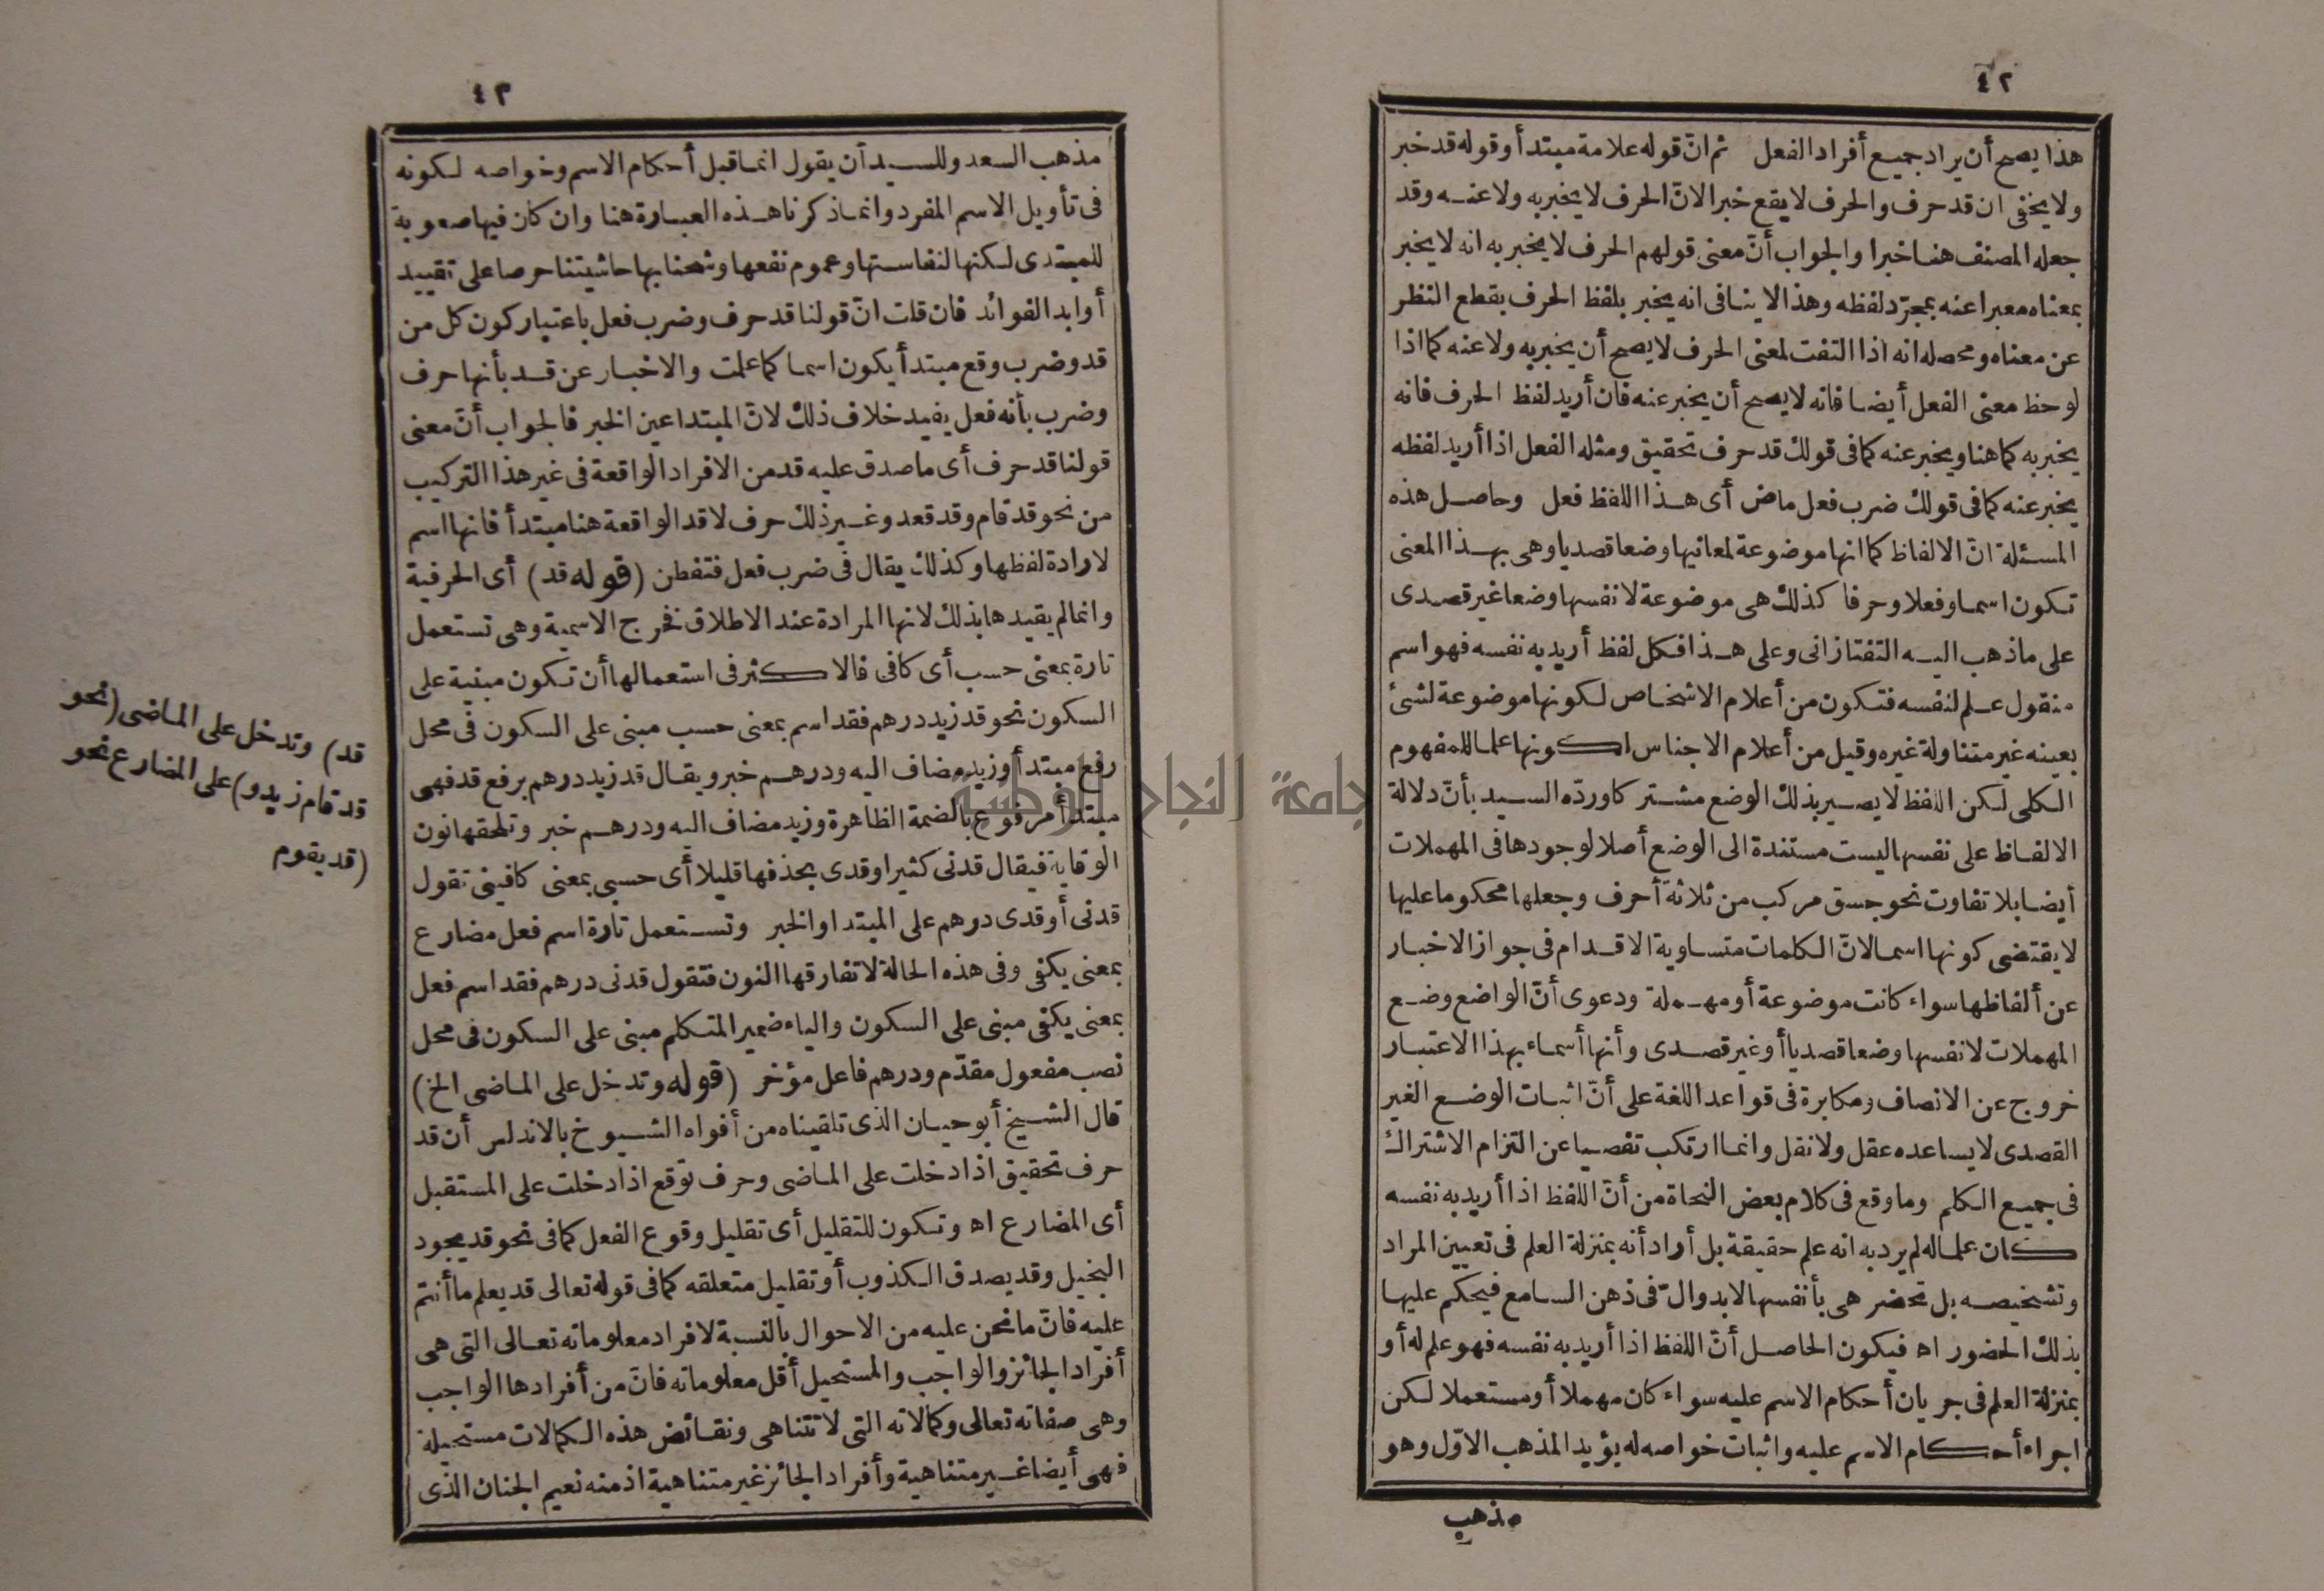 ٤٢
هذا يصح أن يراد جميع أفراد الفعل ثم انّ قوله علامة مبتدأ وقوله قد خبر
ولا يخفى ان قد حرف والحرف لا يقع خبرا لانّ الحرف لا يخبر به ولا عنه وقد
جعله المصنف هنا خبرا والجواب أنّ معنى قولهم الحرف لا يخبر به انه لا يخبر
بمعناه معبرا عنه بمجرّد لفظه وهذا لا ينافى انه يخبر بلفظ الحرف بقطع النظر
عن معناه ومحصله انه اذا التفت لمعنى الحرف لا يصح أن يخبر به ولا عنه كما اذا
لوحظ معنى الفعل أيضا فانه لا يصح أن يخبر عنه فان أريد لفظ الحرف فانه
يخبر به كما هنا ويخبر عنه كما فى قولك قد حرف تحقيق ومثله الفعل اذا أريد لفظه
يخبر عنه كما فى قولك ضرب فعل ماض أى هذا اللفظ فعل وحاصل هذه
المسئلة انّ الالفاظ كما انها موضوعة لمعانيها وضعا قصديا وهى بهذا المعنى
تكون اسما وفعلا وحرفا كذلك هى موضوعة لانفسها وضعا غير قصدى
على ما ذهب اليه التفتازانى وعلى هذا فكل لفظ أريد به نفسه فهو اسم
منقول علم لنفسه فتكون من أعلام الاشخاص لكونها موضوعة لشئ
بعينه غير متناولة غيره وقيل من أعلام الاجناس لكونها علما للمفهوم
الكلى لكن اللفظ لا يصير بذلك الوضع مشتركا وردّه السيد بأنّ دلالة
الالفاظ على نفسها ليست مستندة الى الوضع أصلا لوجودها فى المهملات
أيضا بلا تفاوت نحو جسق مركب من ثلاثة أحرف وجعلها محكوما عليها
لا يقتضى كونها اسما لانّ الكلمات متساوية الاقدام فى جواز الاخبار
عن ألفاظها سواء كانت موضوعة أو مهملة ودعوى أنّ الواضع وضع
المهملات لانفسها وضعا قصديا أو غير قصدى وأنها أسماء بهذا الاعتبار
خروج عن الانصاف ومكابرة فى قواعد اللغة على أنّ اثبات الوضع الغير
القصدى لا يساعده عقل ولا نقل وانما ارتكب تفصيا عن التزام الاشتراك
فى جميع الكلم وما وقع فى كلام بعض النحاة من أنّ اللفظ اذا أريد به نفسه
كان علما له لم يرد به انه علم حقيقة بل أراد أنه بمنزلة العلم فى تعيين المراد
وتشخيصه بل تحضر هى بأنفسها لا بدوالّ فى ذهن السامع فيحكم عليها
بذلك الحضور اه فيكون الحاصل أنّ اللفظ اذا أريد به نفسه فهو علم له أو
بمنزلة العلم فى جريان أحكام الاسم عليه سواء كان مهملا أو مستعملا لكن
اجراء أحكام الاسم عليه واثبات خواصه له يؤيد المذهب الاوّل وهو
مذهب
٤٣
مذهب السعد وللسيد أن يقول انما قبل أحكام الاسم وخواصه لكونه
فى تأويل الاسم المفرد وانما ذكرنا هذه العبارة هنا وان كان فيها صعوبة
للمبتدى لكنها لنفاستها وعموم نفعها وشحنا بها حاشيتنا حرصا على تقييد
أوابد الفوائد فان قلت انّ قولنا قد حرف وضرب فعل باعتبار كون كل من
قد وضرب وقع مبتدأ يكون اسما كما علمت والاخبار عن قد بأنها حرف
وضرب بأنه فعل يفيد خلاف ذلك لانّ المبتدا عين الخبر فالجواب أنّ معنى
قولنا قد حرف أى ما صدق عليه قد من الافراد الواقعة فى غير هذا التركيب
من نحو قد قام وقد قعد وغير ذلك حرف لا قد الواقعة هنا مبتدأ فانها اسم
لارادة لفظها وكذلك يقال فى ضرب فعل فتفطن (قوله قد) أى الحرفية
وانما لم يقيدها بذلك لانها المرادة عند الاطلاق فخرج الاسمية وهى تستعمل
تارة بمعنى حسب أى كافى فالاكثر فى استعمالها أن تكون مبنية على
السكون نحو قد زيد درهم فقد اسم بمعنى حسب مبنى على السكون فى محل
رفع مبتدأ وزيد مضاف اليه ودرهم خبر ويقال قد زيد درهم برفع قد فهى
مبتدأ مرفوع بالضمة الظاهرة وزيد مضاف اليه ودرهم خبر وتلحقها نون
الوقاية فيقال قدنى كثيرا وقدى بحذفها قليلا أى حسبى بمعنى كافينى تقول
قدنى أو قدى درهم على المبتدا والخبر وتستعمل تارة اسم فعل مضارع
بمعنى يكفى وفى هذه الحالة لا تفارقها النون فتقول قدنى درهم فقد اسم فعل
بمعنى يكفى مبنى على السكون والياء ضمير المتكلم مبنى على السكون فى محل
نصب مفعول مقدّم ودرهم فاعل مؤخر (قوله وتدخل على الماضى الخ)
قال الشيخ أبو حيان الذى تلقيناه من أفواه الشيوخ بالاندلس أن قد
حرف تحقيق اذا دخلت على الماضى وحرف توقع اذا دخلت على المستقبل
أى المضارع اه وتكون للتقليل أى تقليل وقوع الفعل كما فى نحو قد يجود
البخيل وقد يصدق الكذوب أو تقليل متعلقه كما فى قوله تعالى قد يعلم ما أنتم
عليه فانّ ما نحن عليه من الاحوال بالنسبة لافراد معلوماته تعالى التى هى
أفراد الجائز والواجب والمستحيل أقل معلوماته فانّ من أفرادها الواجب
وهى صفاته تعالى وكمالاته التى لا تتناهى ونقائض هذه الكمالات مستحيلة
فهى أيضا غير متناهية وأفراد الجائز غير متناهية اذ منه نعيم الجنان الذى
قد) وتدخل على الماضى (نحو
قد قام زيد و) على المضارع نحو
(قد يقوم
جامعة النجاح الوطنية